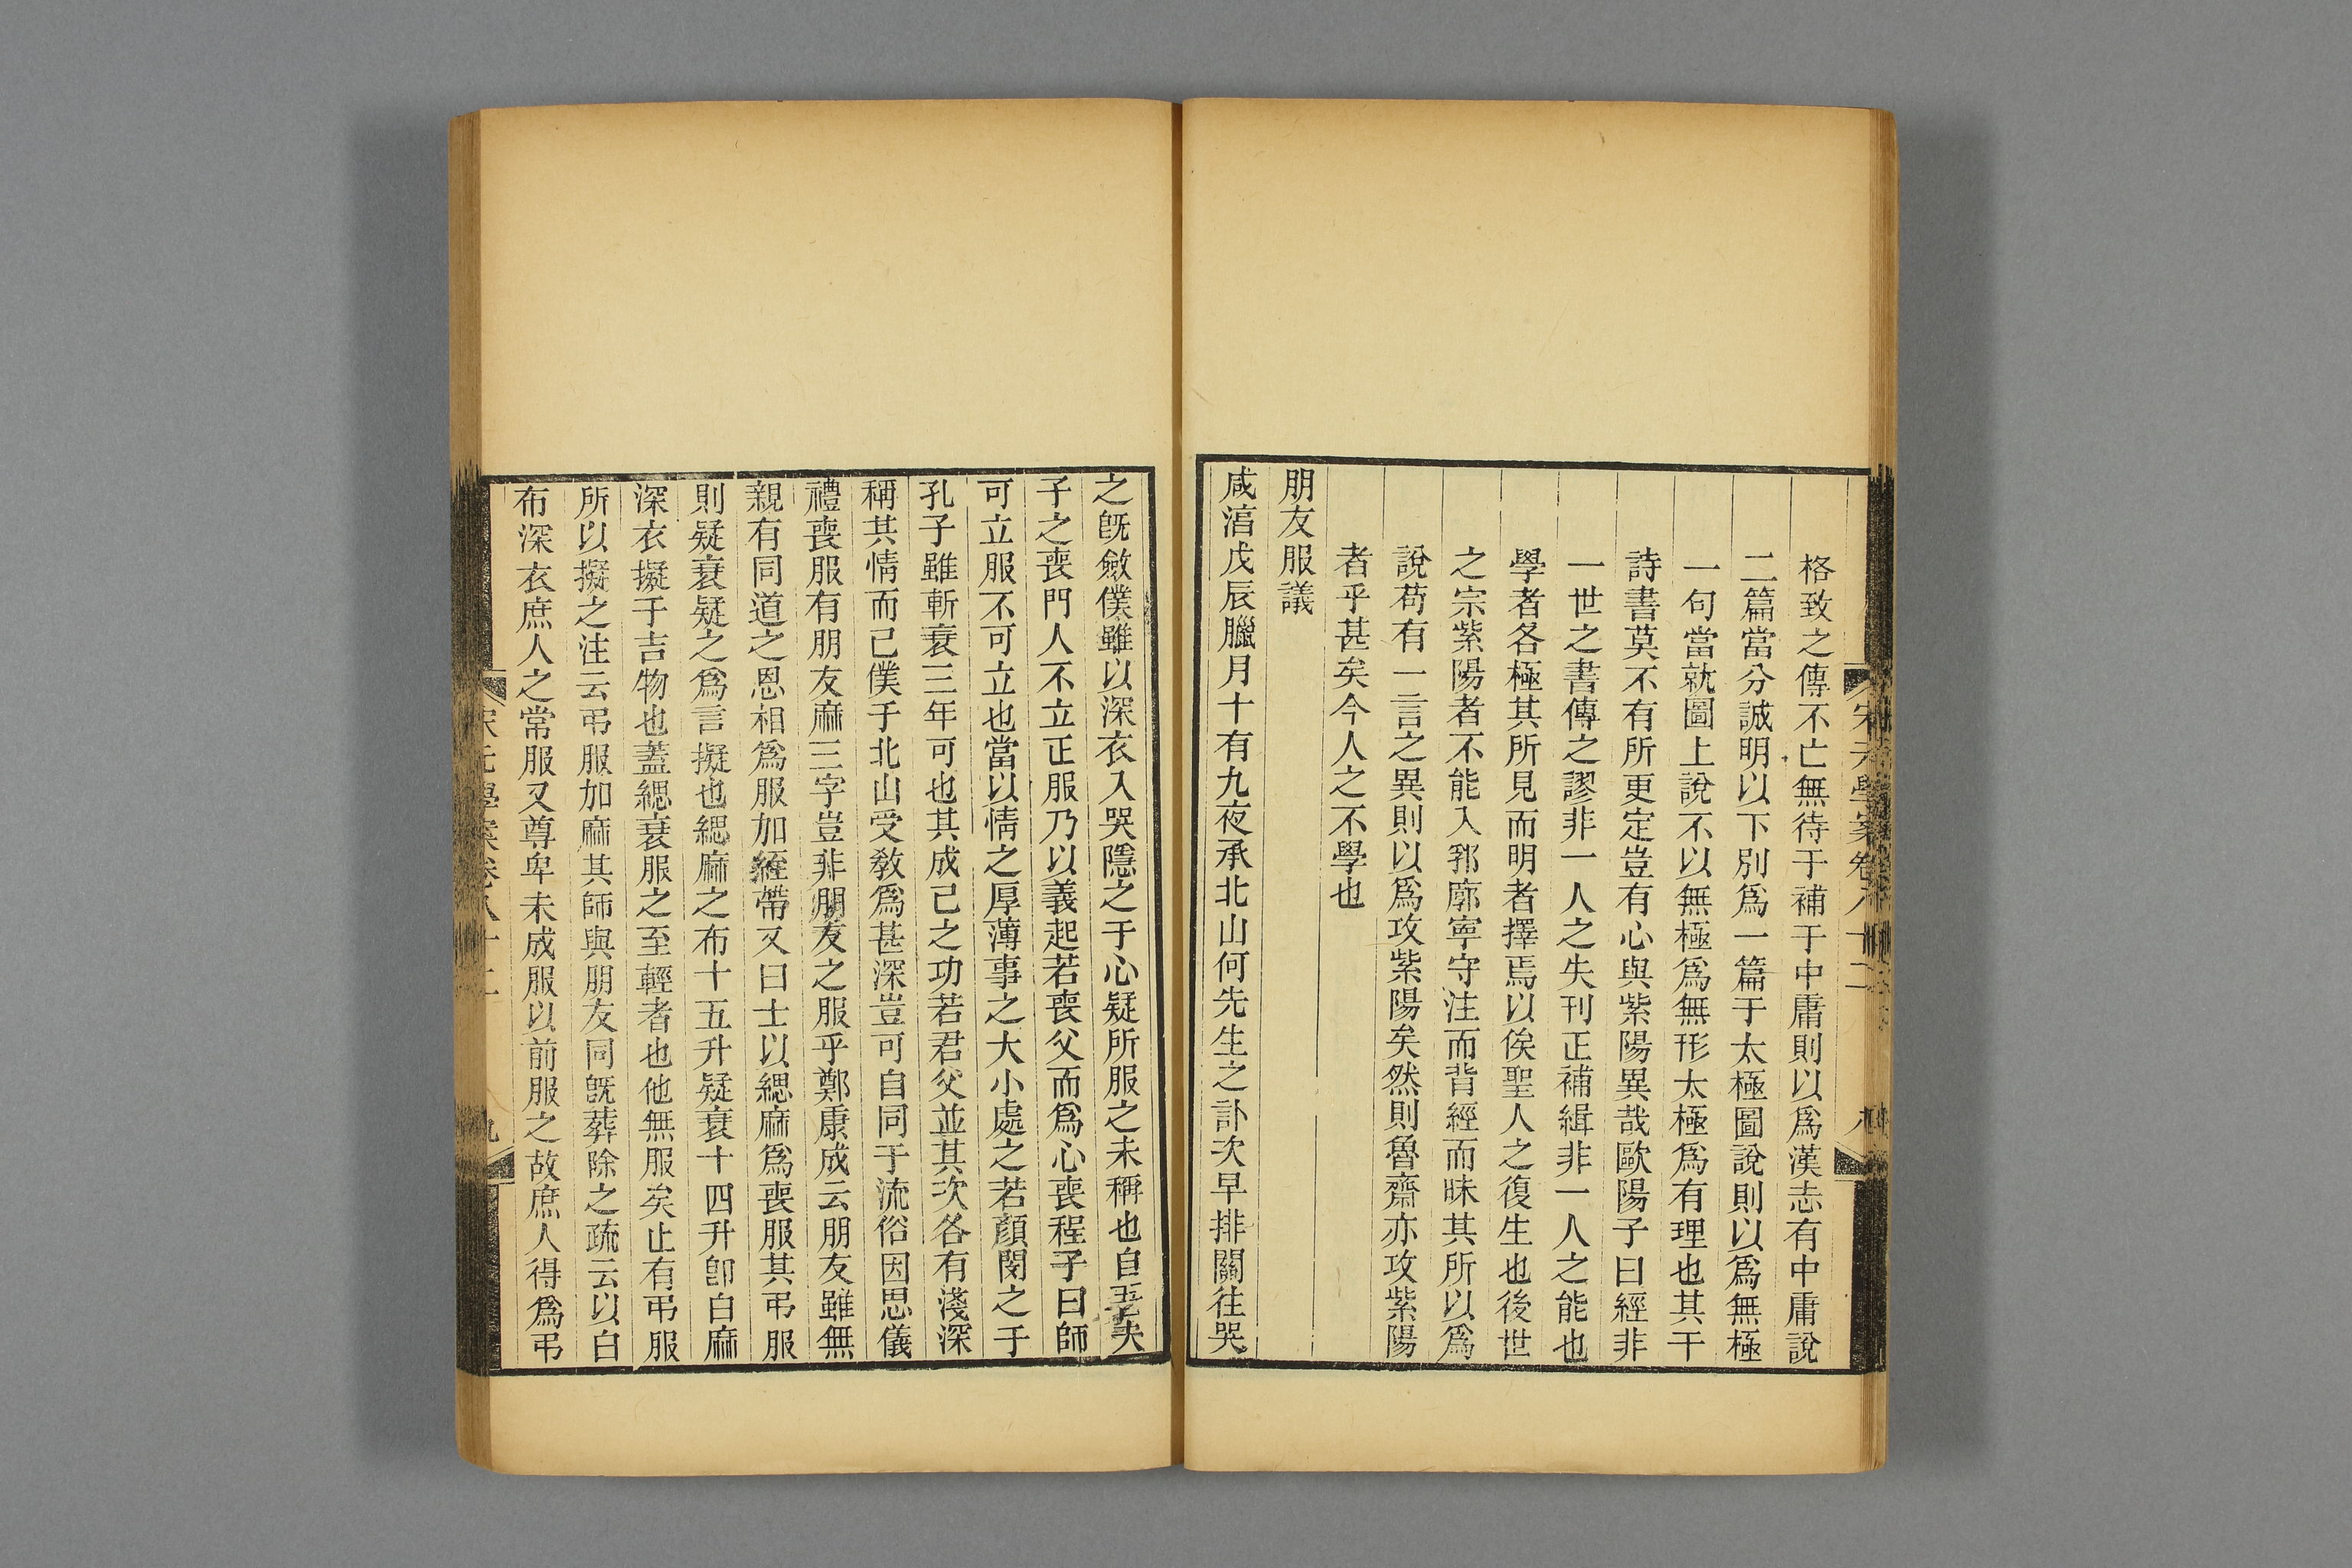 宋元學案卷八十二
格致之傳不亡無待于補于中庸則以爲漢志有中庸說
二篇當分誠明以下別爲一篇于太極圖說則以爲無極
一句當就圖上說不以無極爲無形太極爲有理也其于
詩書莫不有所更定豈有心與紫陽異哉歐陽子曰經非
一世之書傳之謬非一人之失刊正補緝非一人之能也
學者各極其所見而明者擇焉以俟聖人之復生也後世
之宗紫陽者不能入郛廓寧守注而背經而昧其所以爲
說苟有一言之異則以爲攻紫陽矣然則魯齋亦攻紫陽
者乎甚矣今人之不學也
朋友服議
咸湻戊辰臘月十有九夜承北山何先生之訃次早排闥往哭
之旣斂僕雖以深衣入哭隱之于心疑所服之未稱也自吾夫
子之喪門人不立正服乃以義起若喪父而爲心喪程子曰師
可立服不可立也當以情之厚薄事之大小處之若顏閔之于
孔子雖斬衰三年可也其成己之功若君父並其次各有淺深
稱其情而已僕于北山受敎爲甚深豈可自同于流俗因思儀
禮喪服有朋友麻三字豈非朋友之服乎鄭康成云朋友雖無
親有同道之恩相爲服加絰帶又曰士以緦麻爲喪服其弔服
則疑衰疑之爲言擬也緦麻之布十五升疑衰十四升卽白麻
深衣擬于吉物也蓋緦衰服之至輕者也他無服矣止有弔服
所以擬之注云弔服加麻其師與朋友同旣葬除之疏云以白
布深衣庶人之常服又尊卑未成服以前服之故庶人得爲弔
宋元學案卷八十二
九